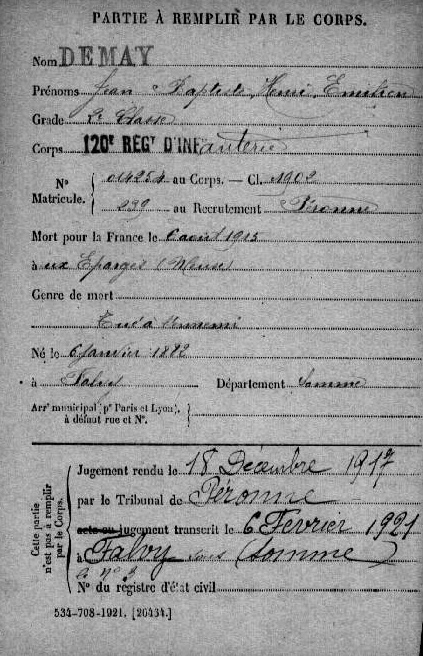 PARTIE À REMPLIR PAR LE CORPS.
Nom DEMAY
Prénoms Jean Baptiste Henri Emilien
Grade 2e Classe
Corps 120e RÉGt D'INFanterie
No Matricule. 014254 au Corps. — Cl. 1902
299 au Recrutement Péronne
Mort pour la France le 6 août 1915
à ux Eparges (Meuse)
Genre de mort
Tué à l'ennemi
Né le 6 Janvier 1882
à Falvy Département Somme
Arrt municipal (pr Paris et Lyon), à défaut rue et No.
Cette partie n'est pas à remplir par le Corps.
Jugement rendu le 18 Décembre 1917
par le Tribunal de Péronne
acte ou jugement transcrit le 6 Fevrier 1921
à Falvy Somme
No du registre d'état civil
534-708-1921. [26434.]